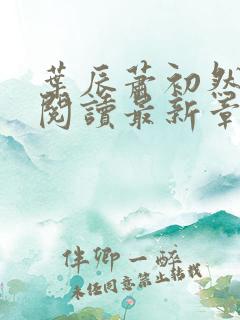 葉辰蕭初然
閱讀最新章
伴卿一醉
未任同意禁止轉載